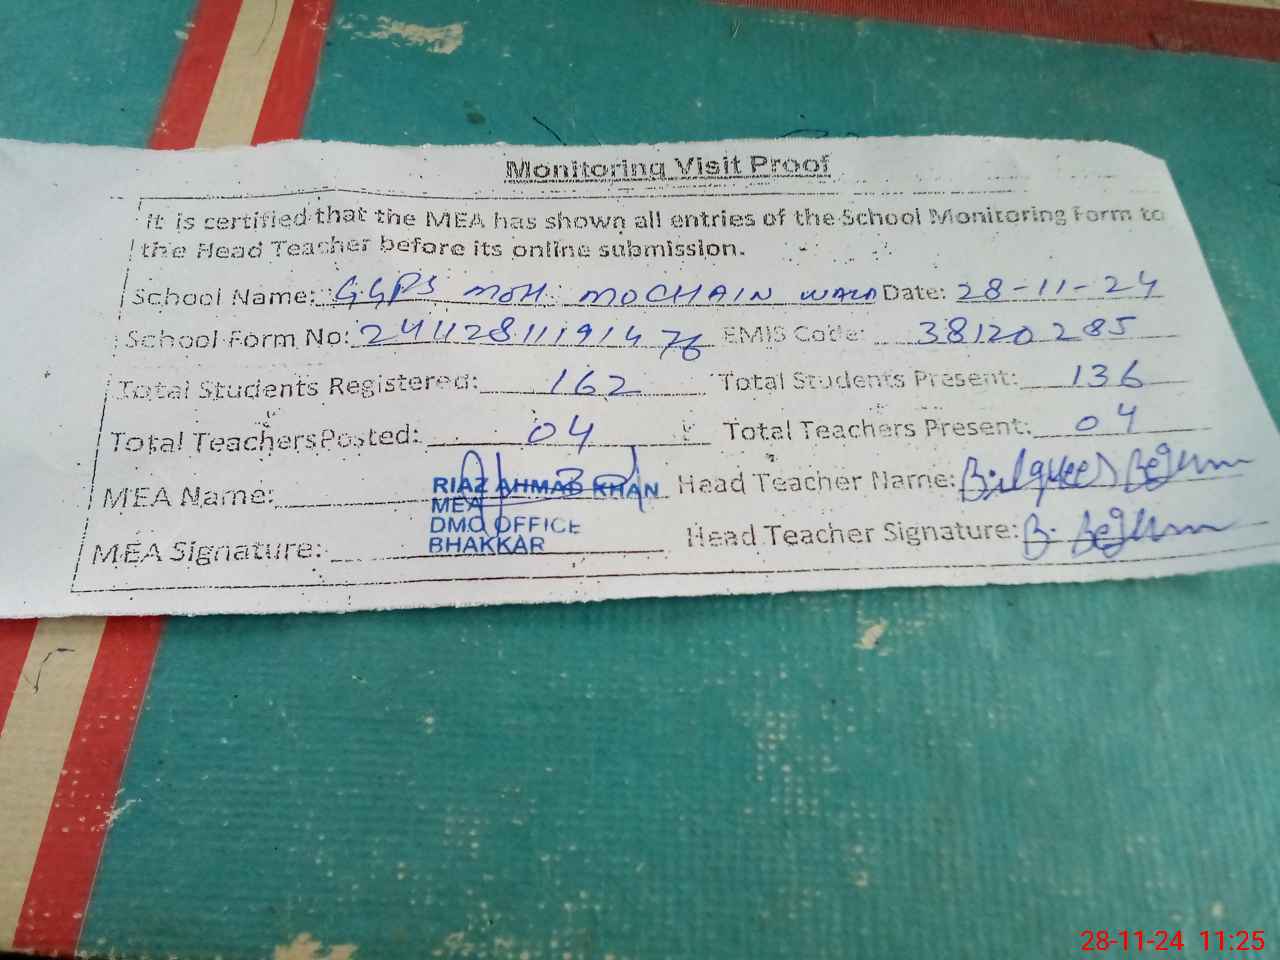 Monitoring Visit Proof
It is certified that the MEA has shown all entries of the School Monitoring Form to
the Head Teacher before its online submission.
School Name: GGPS MOH. MOCHAIN WALA Date: 28-11-24
School Form No: 24112811191476 EMIS Code: 38120285
Total Students Registered: 162 Total Students Present: 136
Total Teachers Posted: 04 Total Teachers Present: 04
MEA Name: RIAZ AHMAD KHAN Head Teacher Name: Bilquees Begum
MEA
DMO OFFICE
MEA Signature: BHAKKAR Head Teacher Signature: B. Begum
28-11-24 11:25